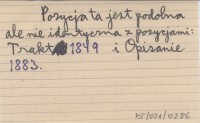 Pozycja ta jest podobna
ale nie identyczna z pozycjami:
Trakt 1849 i Opisanie
1883.